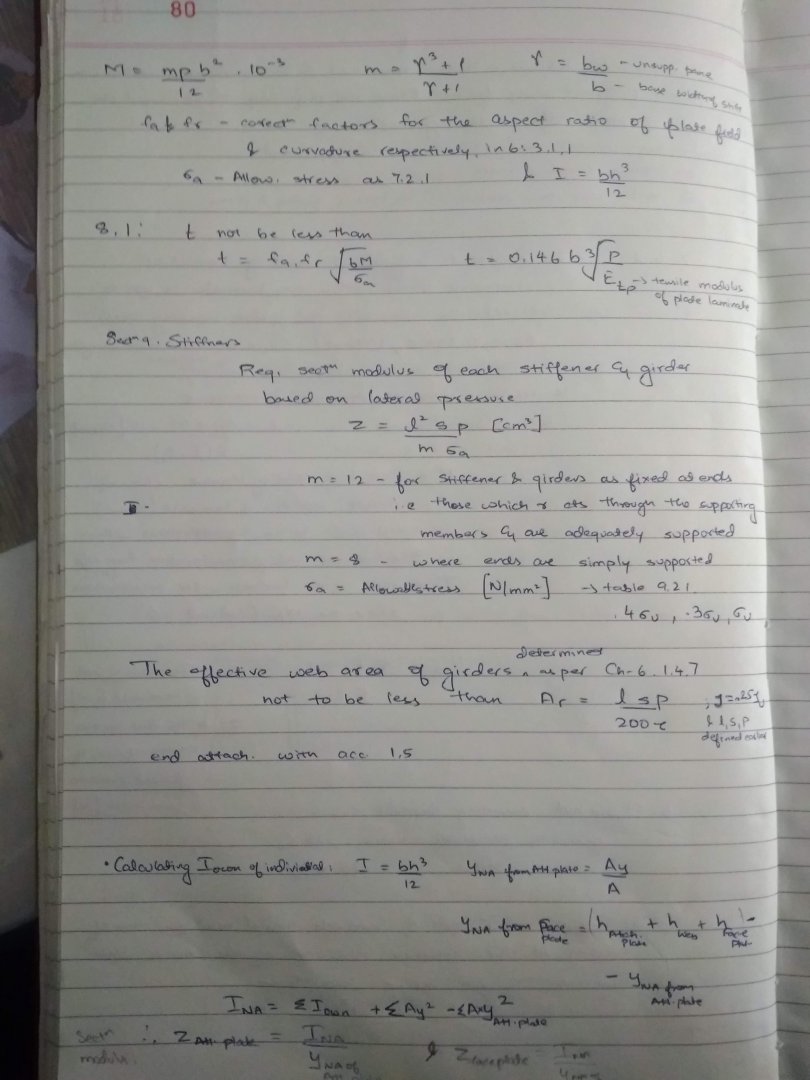 80
M = mpb²/12 . 10⁻³ m = γ³+1/γ+1 γ = bw/b - unsupp.
b - base width of
fa & fr - correctⁿ factors for the aspect ratio of plate field
& curvature respectively, in 6:3.1.1
σa - Allow. stress as 7.2.1 & I = bh³/12
8.1: t not be less than
t = fa.fr √bM/σa t = 0.146 b ∛P/Etp → tensile modulus
of plate laminate
Sectⁿ 9. Stiffners
Req. sectⁿ modulus of each stiffener & girder
based on lateral pressure
Z = l² s p/m σa [cm³]
m = 12 - for stiffener & girders as fixed at ends
I- i.e those which r cts through the supporting
members & are adequately supported
m = 8 - where ends are simply supported
σa = Allowable stress [N/mm²] → table 9.21
.4σu, .3σu, σu
determined
The effective web area of girders ^ as per Ch-6.1.4.7
not to be less than Ar = l s p/200 τ
& l, s, p
defined earlier
end attach. with acc 1.5
• Calculating Iown of individual: I = bh³/12 yNA from Att plate = Ay/A
yNA from Face plate = (hAttch. Plate + hWeb + hFace Plat) -
- yNA from Att. plate
INA = ΣIown + ΣAy² - ΣAxy²Att. plate
Sectⁿ modulu. ∴ ZAtt plate = INA/yNA of & Zface plate = INA